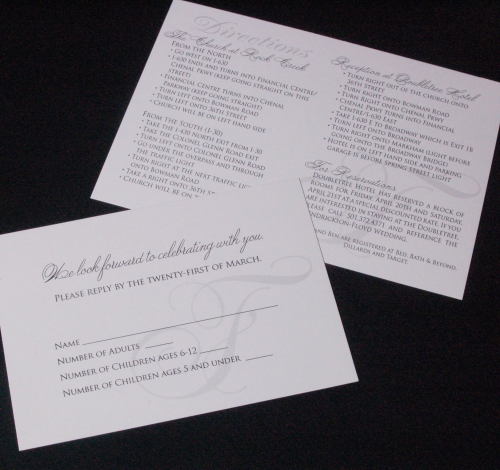 Directions
The Church at Rock Creek
From the North
• Go west on I-630
• I-630 ends and turns into Financial Centre/
Chenal Pkwy (keep going straight on this
street)
• Financial Centre turns into Chenal
Parkway (keep going straight)
• Turn left onto Bowman Road
• Turn right onto 36th Street
• Church will be on left hand side
From the South (I-30)
• Take the I-430 North exit from I-30
• Take the Colonel Glenn exit
• Turn left onto Colonel Glenn Road
• Go under the overpass and through
the traffic light
• Turn right at the next traffic light
onto Bowman Road
• Take a right onto 36th St
• Church will be on
Reception at Doubletree Hotel
• Turn right out of the church onto
36th Street
• Turn right onto Bowman Road
• Turn right onto Chenal Pkwy
• Chenal Pkwy turns into Financial
Centre/I-630 East
• Take I-630 E to Broadway which is Exit 1B
• Turn left onto Broadway
• Turn right onto Markham (light before
going onto the Broadway bridge)
• Hotel is on left hand side and parking
garage is before Spring Street light
For Reservations
Doubletree Hotel has reserved a block of
rooms for Friday, April 20th and Saturday,
April 21st at a special discounted rate. If you
are interested in staying at the Doubletree,
please call 501.372.4371 and reference the
Hendrickson-Floyd Wedding.
and Ben are registered at Bed, Bath & Beyond,
Dillards and Target.
We look forward to celebrating with you.
Please reply by the twenty-first of March.
Name
Number of Adults
Number of Children ages 6-12
Number of Children ages 5 and under
F